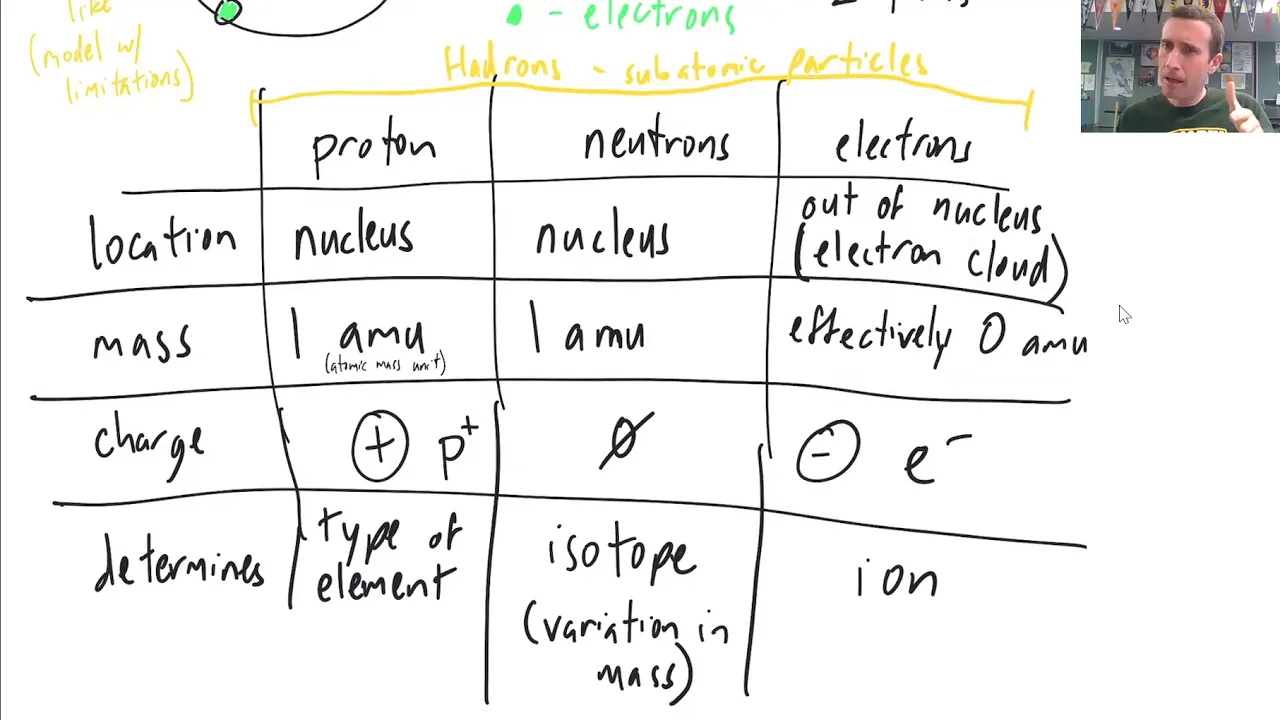 like
(model w/
limitations)
- electrons
Hadrons - subatomic particles
proton neutrons electrons
location nucleus nucleus out of nucleus
(electron cloud)
mass 1 amu 1 amu effectively 0 amu
(atomic mass unit)
charge + p+ ∅ - e-
determines type of
element isotope ion
(variation in
mass)